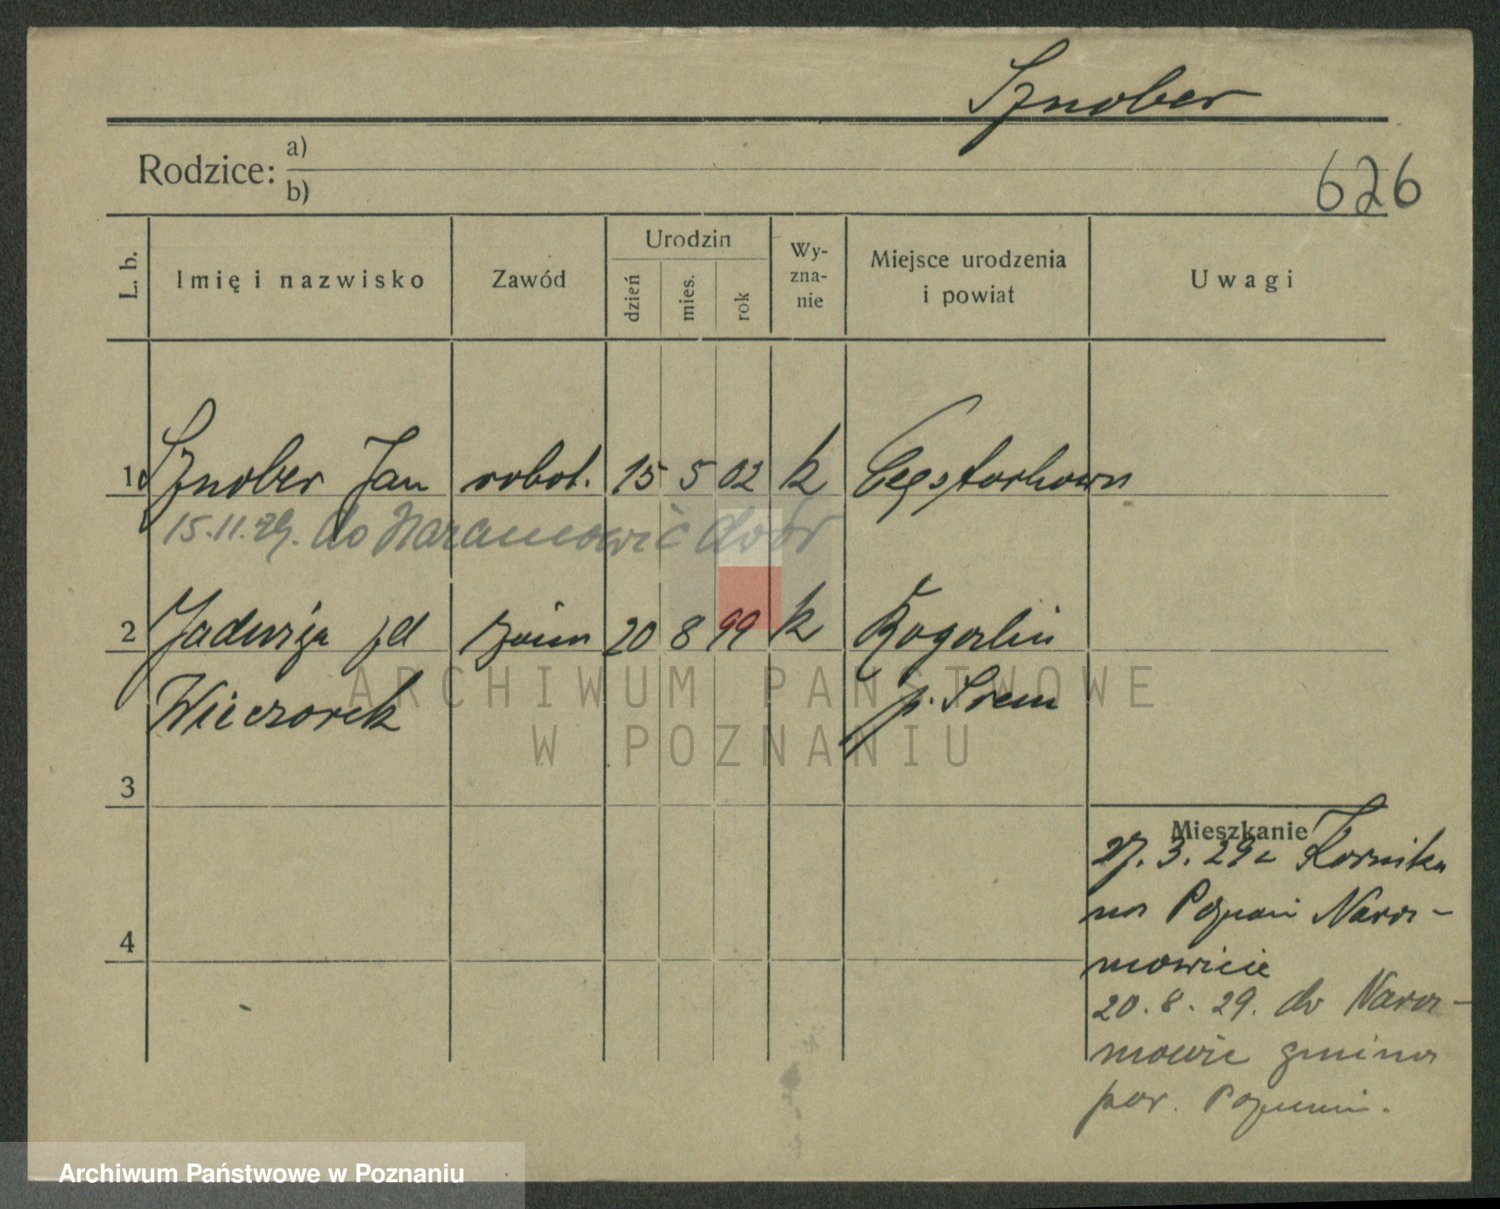 Sznober
626
Rodzice: a)
b)
L. b. Imię i nazwisko Zawód Urodzin dzień mies. rok Wy-zna-nie Miejsce urodzenia i powiat Uwagi
1 Sznober Jan robot. 15 5 02 k Częstochowa
15.11.29. do Naramowic dwór
2 Jadwiga żona 20 8 99 k Rogalin
Wieczorek p. Śrem
3
Mieszkanie
27. 3. 29 z Kórnika
na Poznań Nara-
mowicie
4
20. 8. 29. do Nara-
mowic gmina
pow. Poznań.
ARCHIWUM PAŃSTWOWE
W POZNANIU
Archiwum Państwowe w Poznaniu